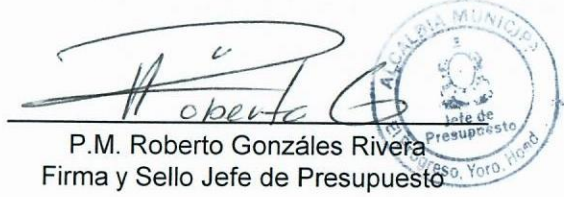 Roberto G
ALCALDIA MUNICIPAL
Jefe de
Presupuesto
El Progreso, Yoro, Hond
P.M. Roberto Gonzáles Rivera
Firma y Sello Jefe de Presupuesto